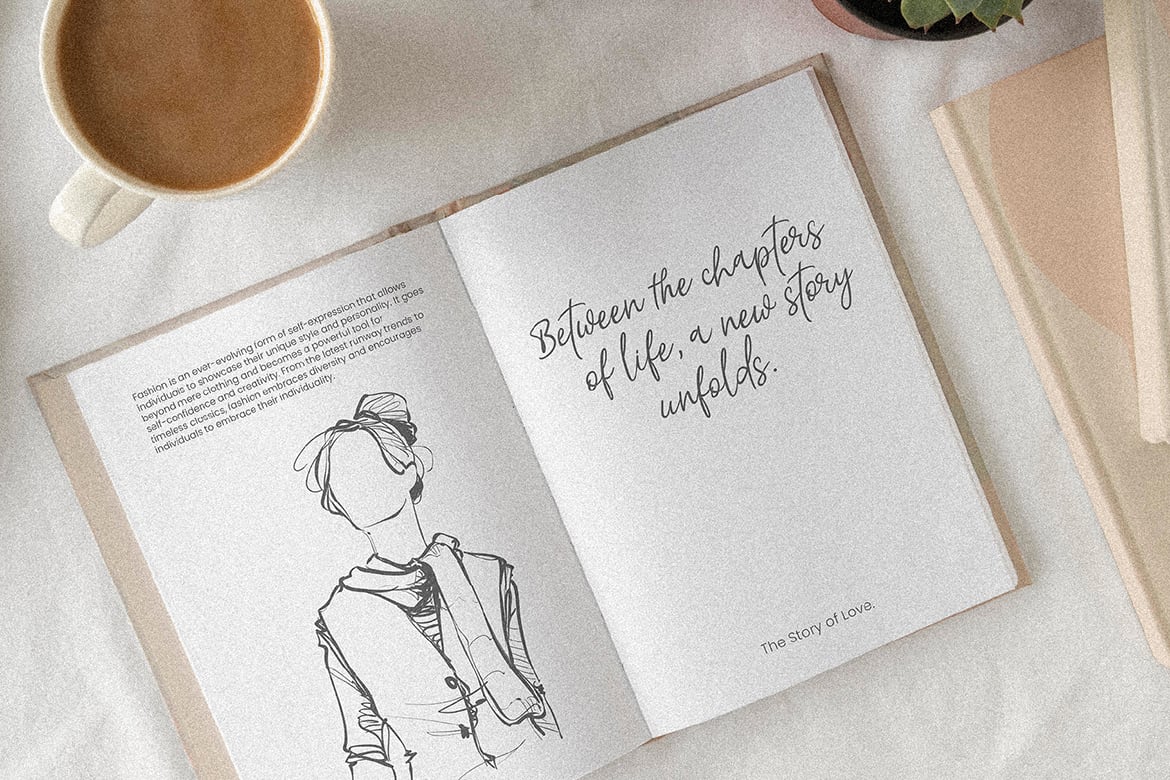 Fashion is an ever-evolving form of self-expression that allows
individuals to showcase their unique style and personality. It goes
beyond mere clothing and becomes a powerful tool for
self-confidence and creativity. From the latest runway trends to
timeless classics, fashion embraces diversity and encourages
individuals to embrace their individuality.
Between the chapters
of life, a new story
unfolds.
The Story of Love.